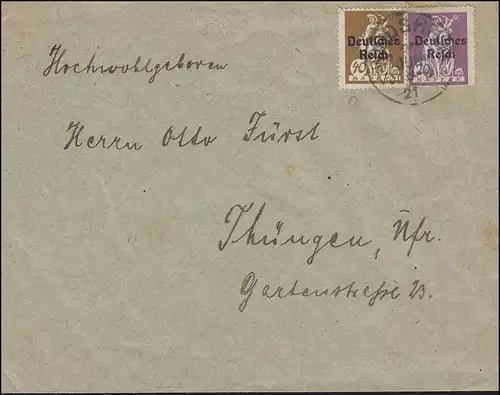 Deutsches Reich
40 BAYERN
Deutsches Reich
20 BAYERN
21
Hochwohlgeboren
Herrn Otto Fürst
Thüngen, Ufr.
Gartenstraße